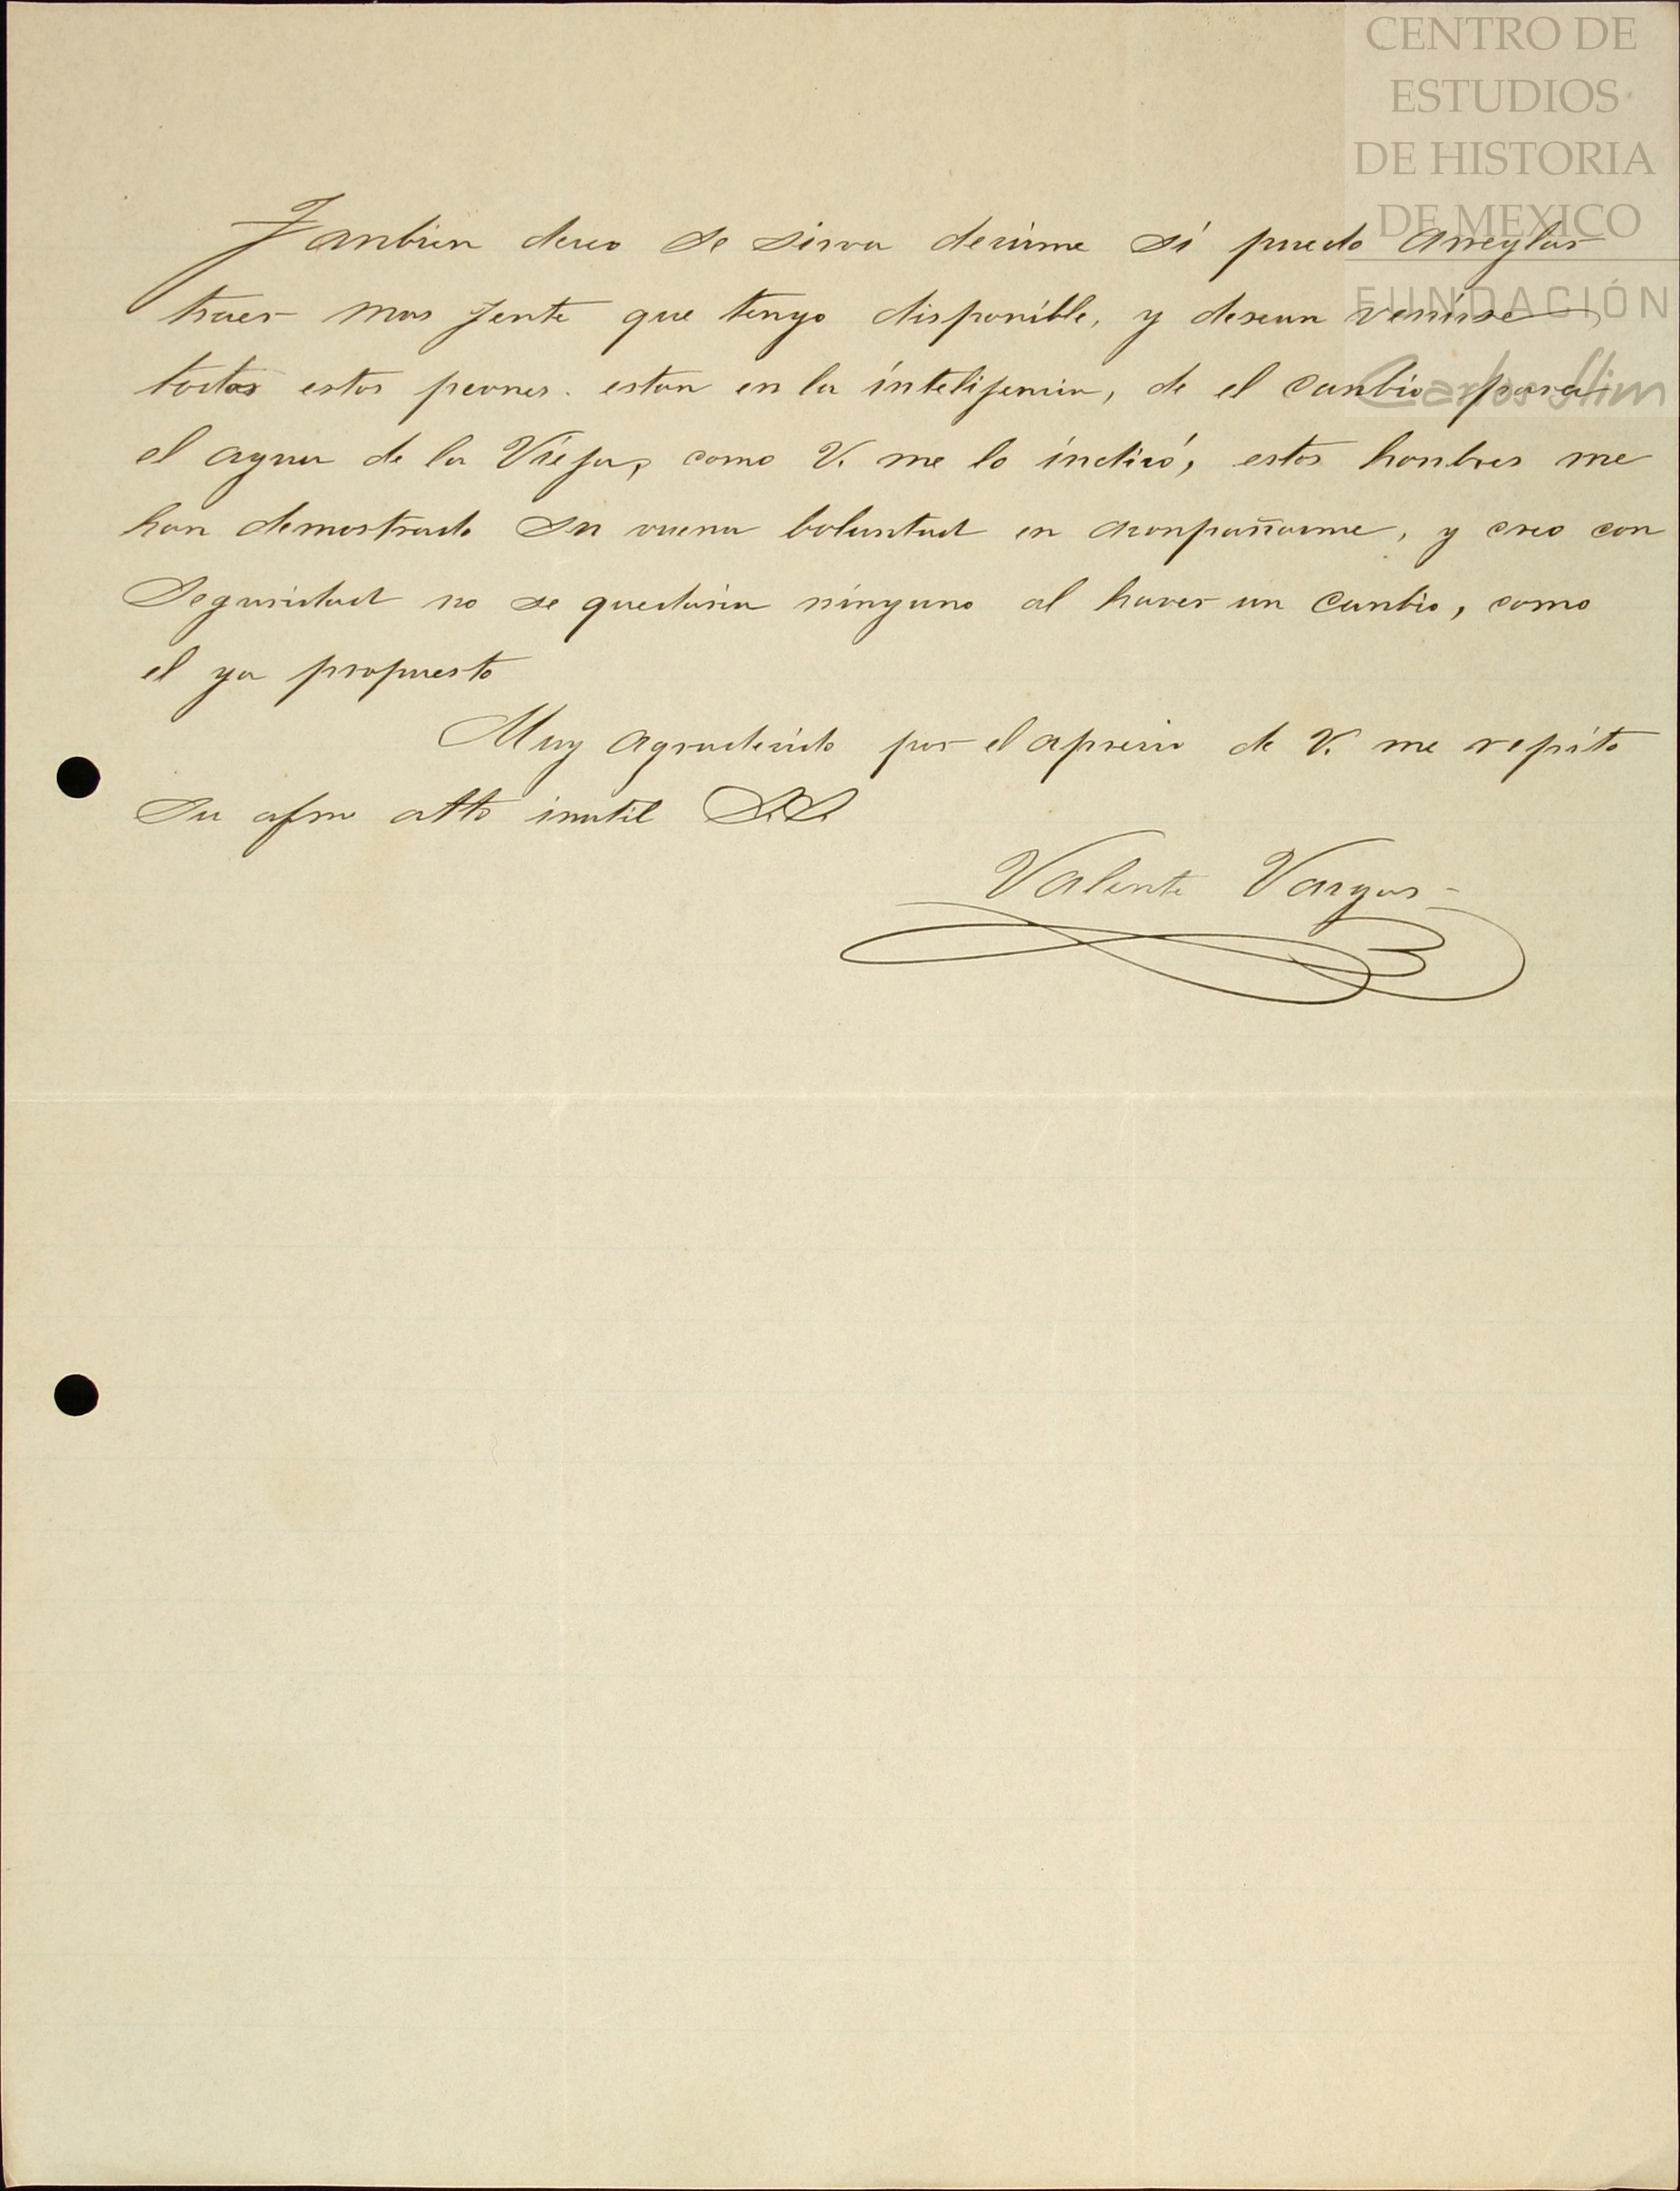 CENTRO DE
ESTUDIOS
DE HISTORIA
DE MEXICO
FUNDACIÓN
Carlos Slim
Tanbien deseo se sirva decirme sí puedo arreglar
traer mas jente que tengo disponible, y desean venirse
todos estos peones. estan en la intelijencia, de el canbio para
el agua de la Vieja, como V. me lo indicó, estos honbres me
han demostrado su vuena boluntad en aconpañarme, y creo con
Seguridad no se quedaria ninguno al hacer un canbio, como
el ya propuesto
Muy agradecido por el aprecio de V. me repito
Su afmo atto inutil S.S.
Valente Vargas